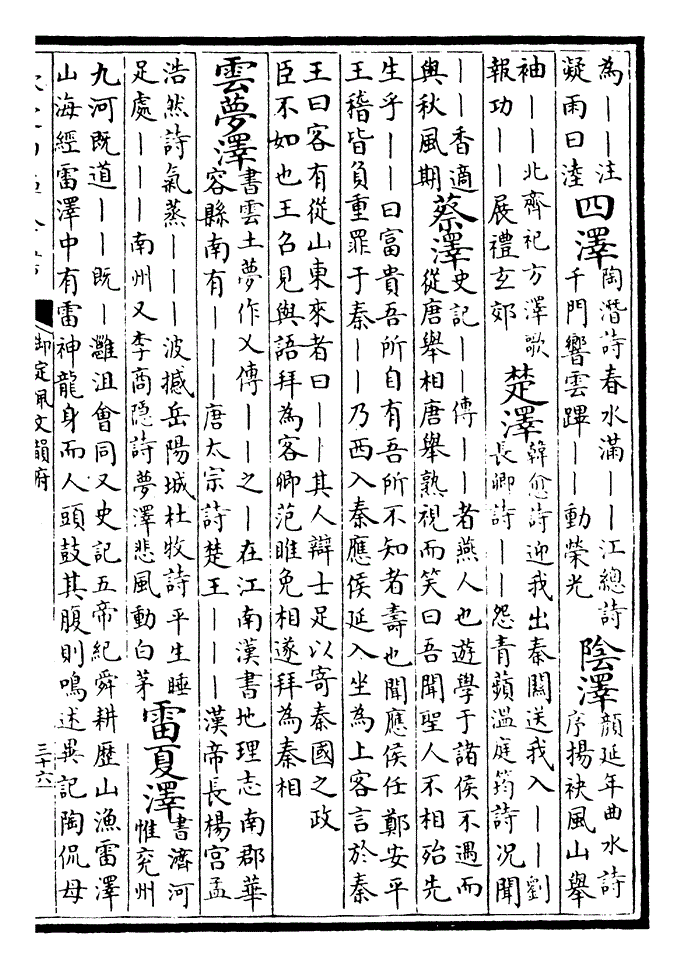 為丨丨注
凝雨曰淕
四澤
陶潛詩春水滿丨丨江總詩
千門響雲蹕丨丨動榮光
陰澤
顔延年曲水詩
序揚袂風山舉
袖丨丨北齊祀方澤歌
報功丨丨展禮玄郊
楚澤
韓愈詩迎我出秦關送我入丨丨劉
長卿詩丨丨怨青蘋溫庭筠詩況聞
丨丨香適
與秋風期
蔡澤
史記丨丨傳丨丨者燕人也遊學于諸侯不遇而
從唐舉相唐舉熟視而笑曰吾聞聖人不相殆先
生乎丨丨曰富貴吾所自有吾所不知者壽也聞應侯任鄭安平
王稽皆負重罪于秦丨丨乃西入秦應侯延入坐為上客言於秦
王曰客有從山東來者曰丨丨其人辯士足以寄秦國之政
臣不如也王召見與語拜為客卿范睢免相遂拜為秦相
雲夢澤
書雲土夢作乂傳丨丨之丨在江南漢書地理志南郡華
容縣南有丨丨丨唐太宗詩楚王丨丨丨漢帝長楊宫孟
浩然詩氣蒸丨丨丨波撼岳陽城杜牧詩平生睡
足處丨丨丨南州又李商隱詩夢澤悲風動白茅
雷夏澤
書濟河
惟兖州
九河既道丨丨既丨灉沮會同又史記五帝紀舜耕歷山漁雷澤
山海經雷澤中有雷神龍身而人頭鼓其腹則鳴述異記陶侃母
御定佩文韻府
三十六